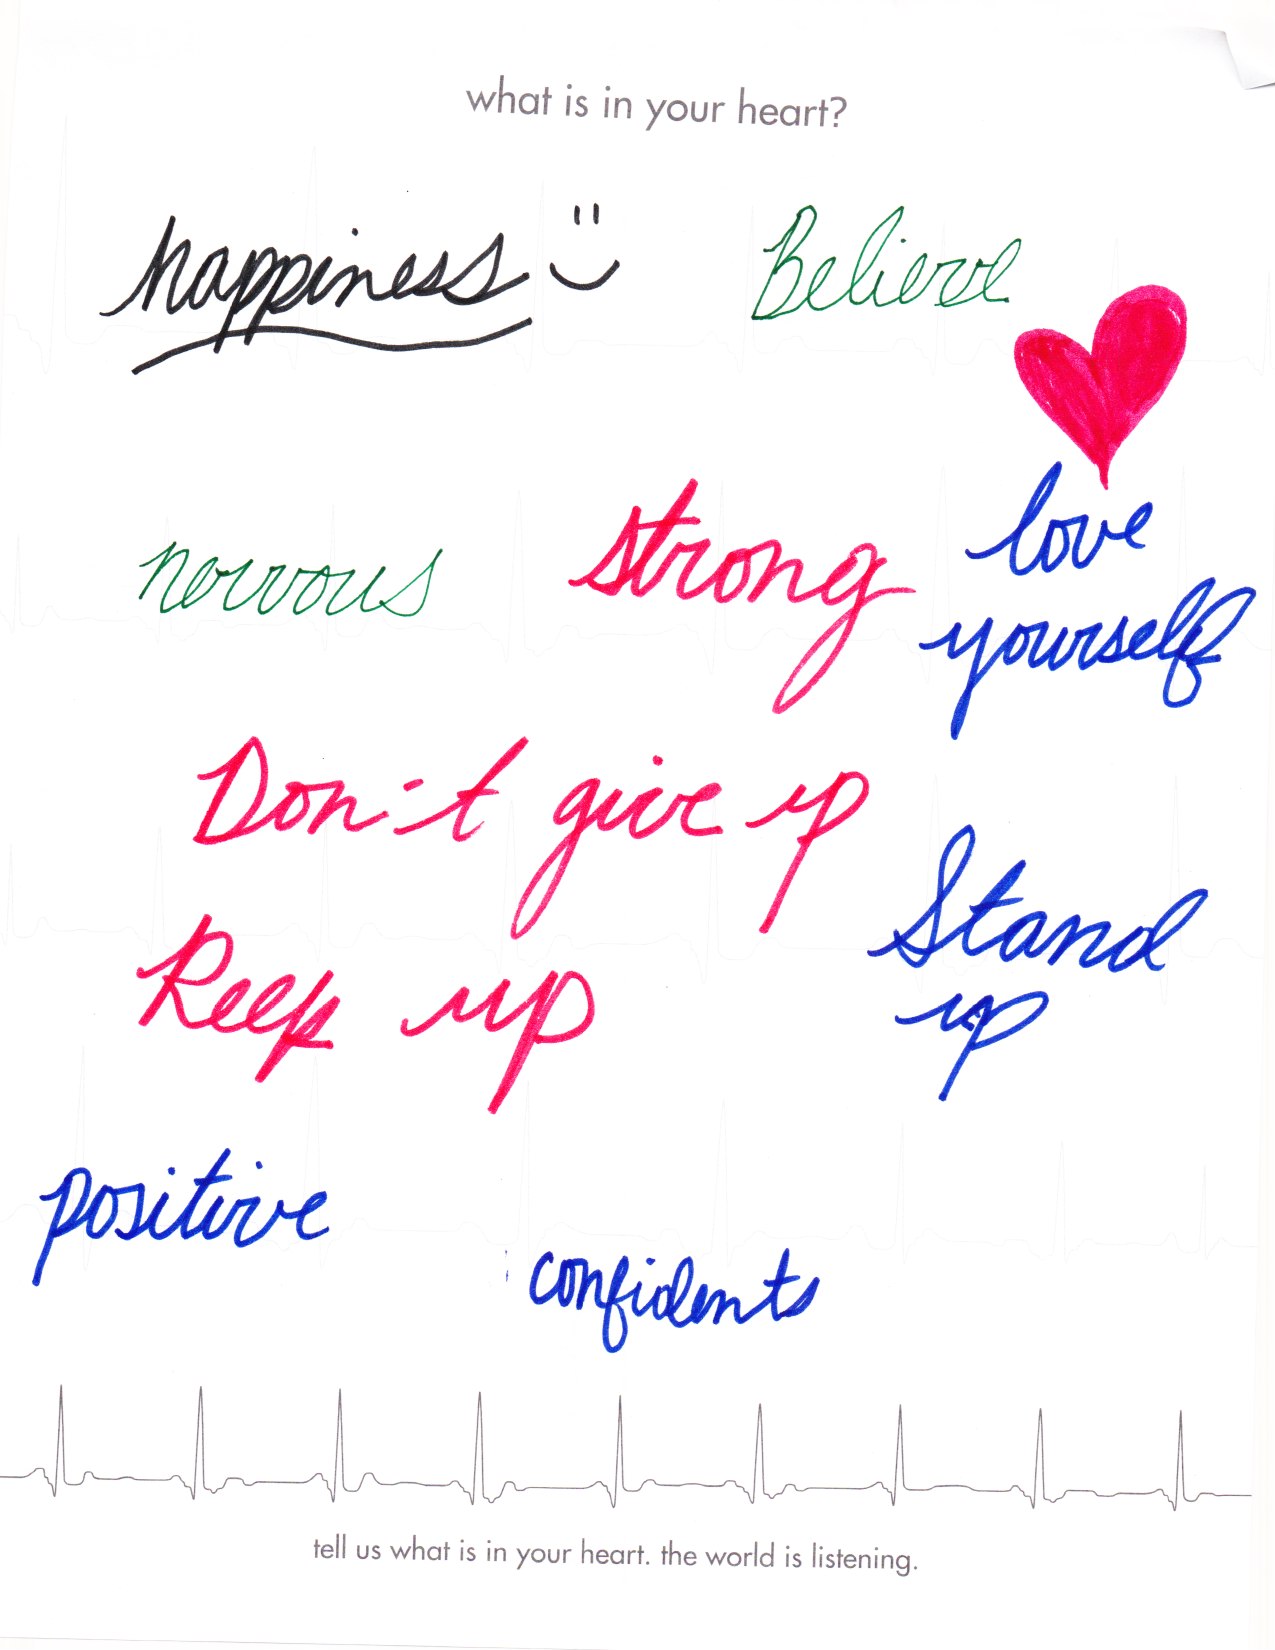 what is in your heart?
happiness
Believe
nervous
strong
love
yourself
Don't give up
Stand
up
Keep up
positive
confidents
tell us what is in your heart. the world is listening.